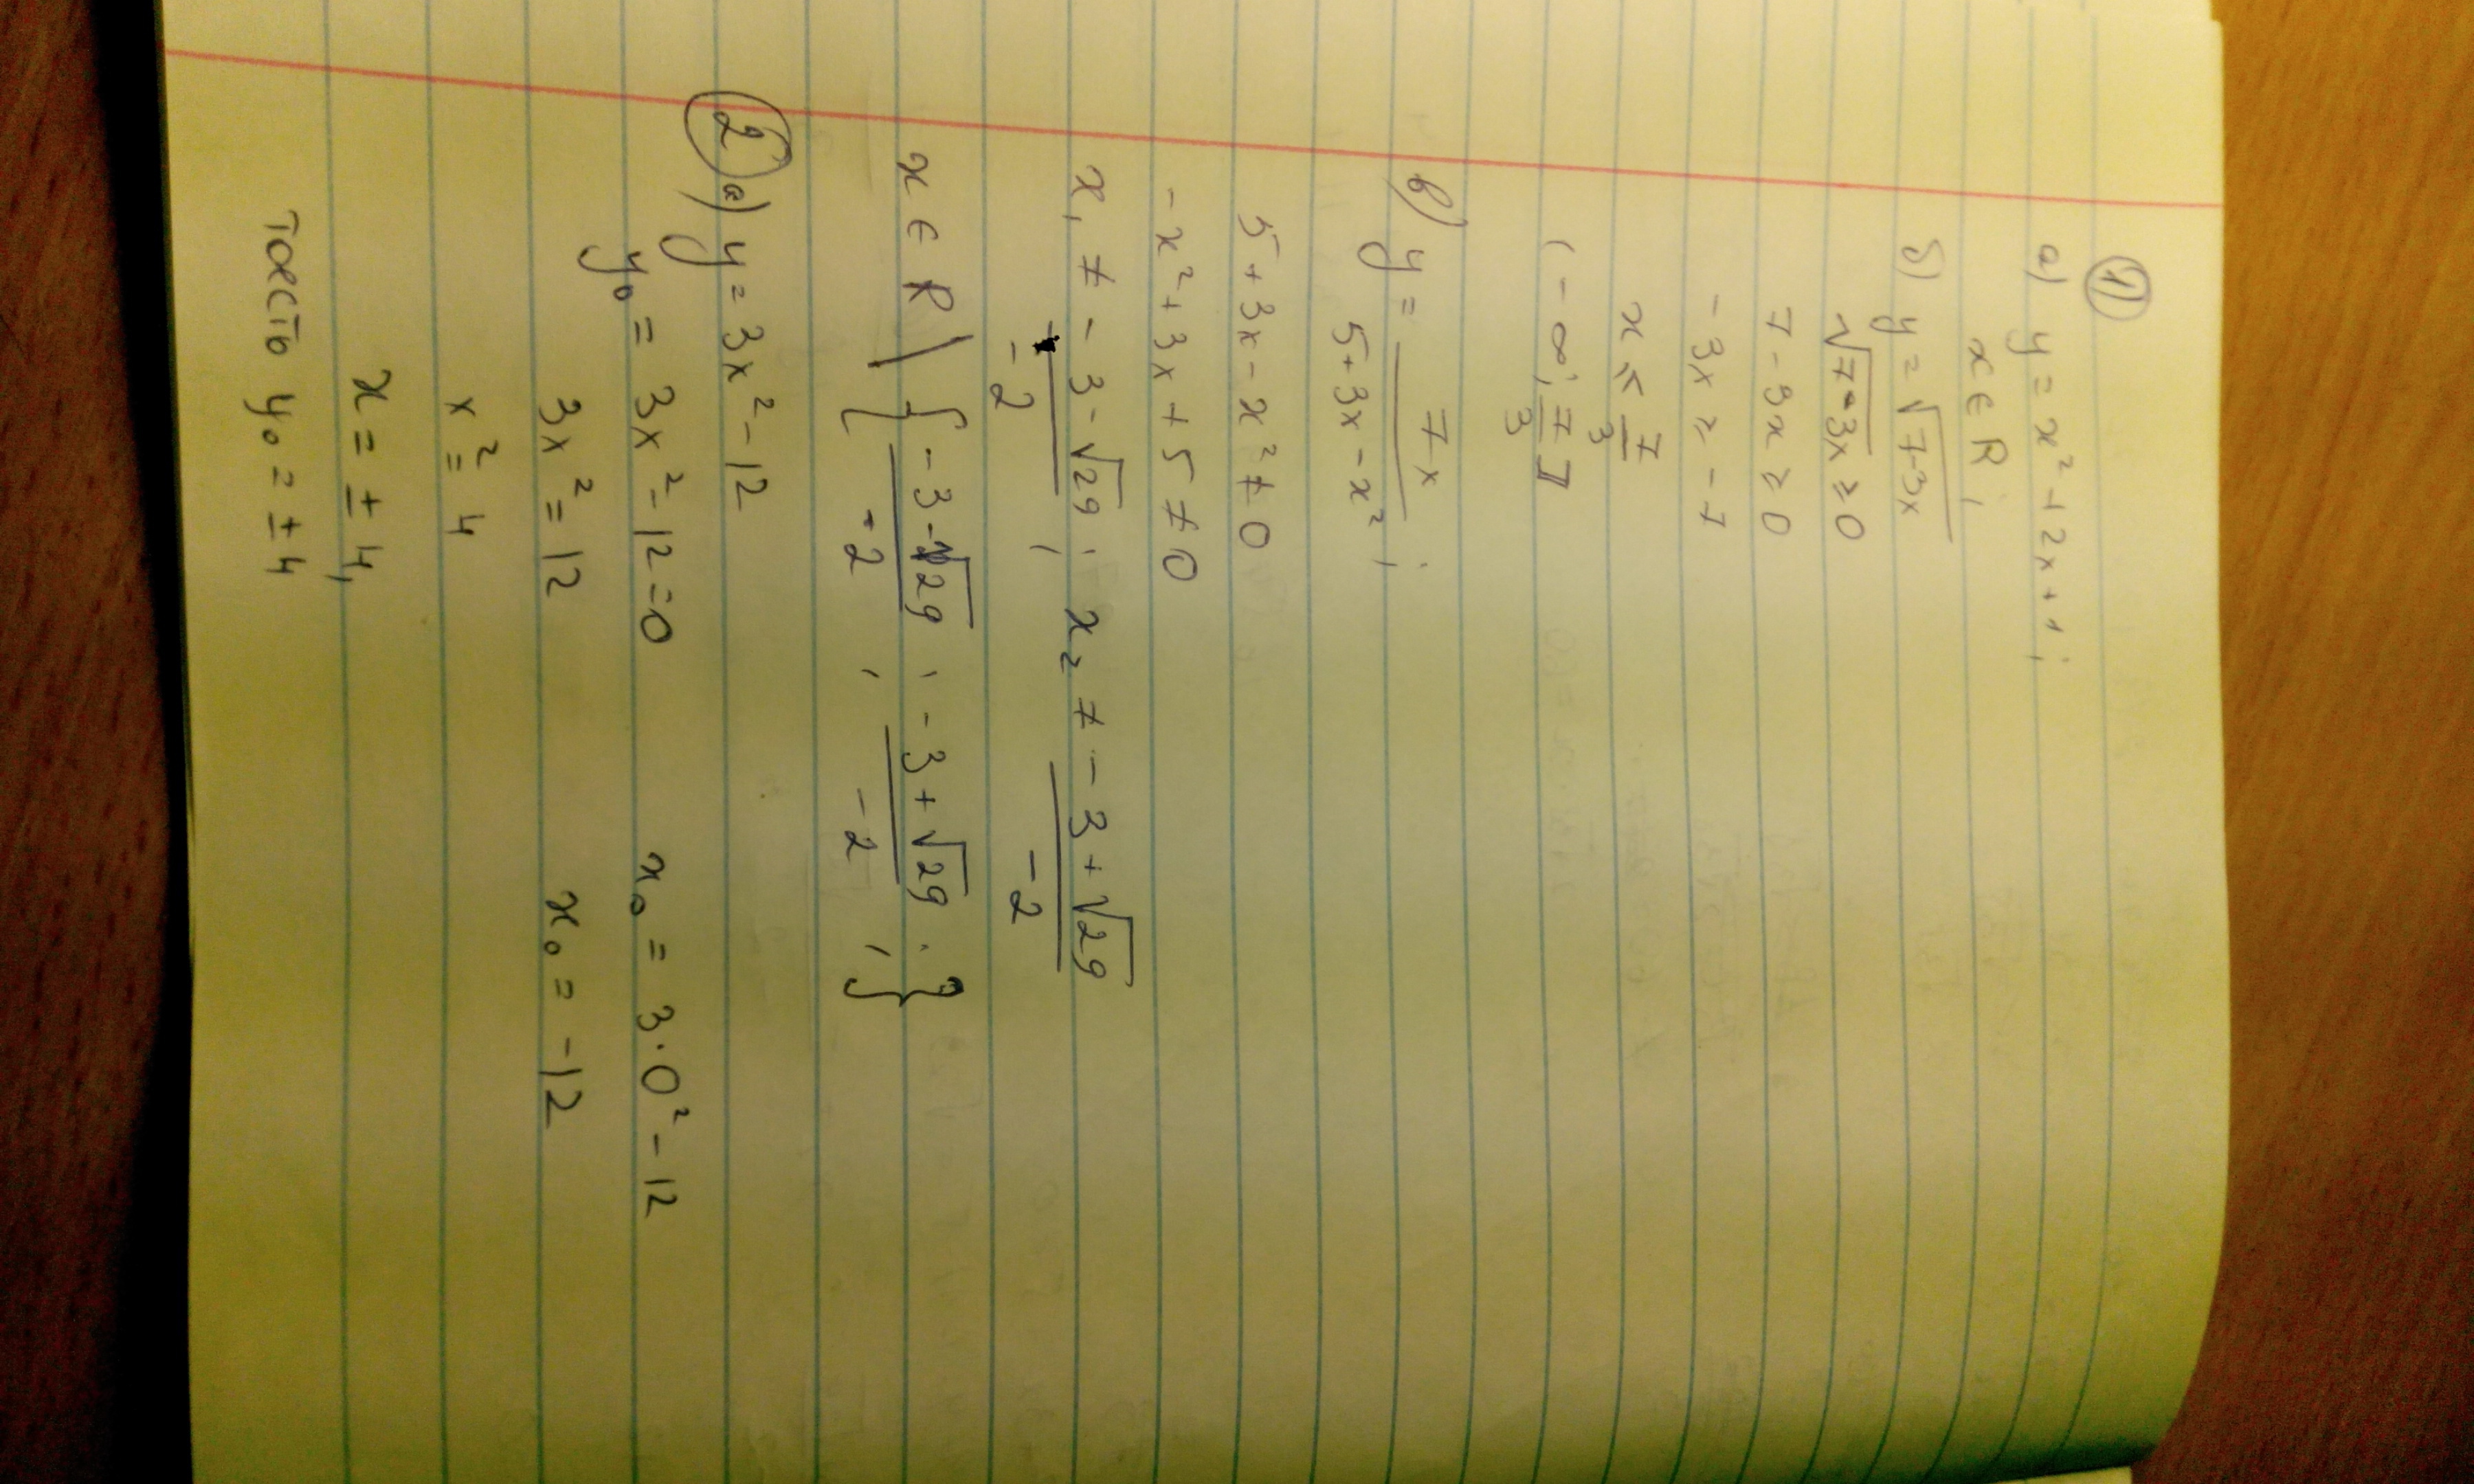 1
а) y = x² + 2x + 1;
x ∈ R;
б) y = √7-3x
√7-3x ≥ 0
7 - 3x ≥ 0
-3x ≥ -7
x ≤ 7/3
(-∞; 7/3]
в) y = 7x / 5+3x-x² ;
5 + 3x - x² ≠ 0
-x² + 3x + 5 ≠ 0
x₁ ≠ -3-√29 / -2 ; x₂ ≠ -3+√29 / -2
x ∈ R \ { -3-√29 / -2 ; -3+√29 / -2 ; }
2 а) y = 3x² - 12
y₀ = 3x² - 12 = 0 x₀ = 3·0² - 12
3x² = 12 x₀ = -12
x² = 4
x = ± 4,
тоесть y₀ = ± 4